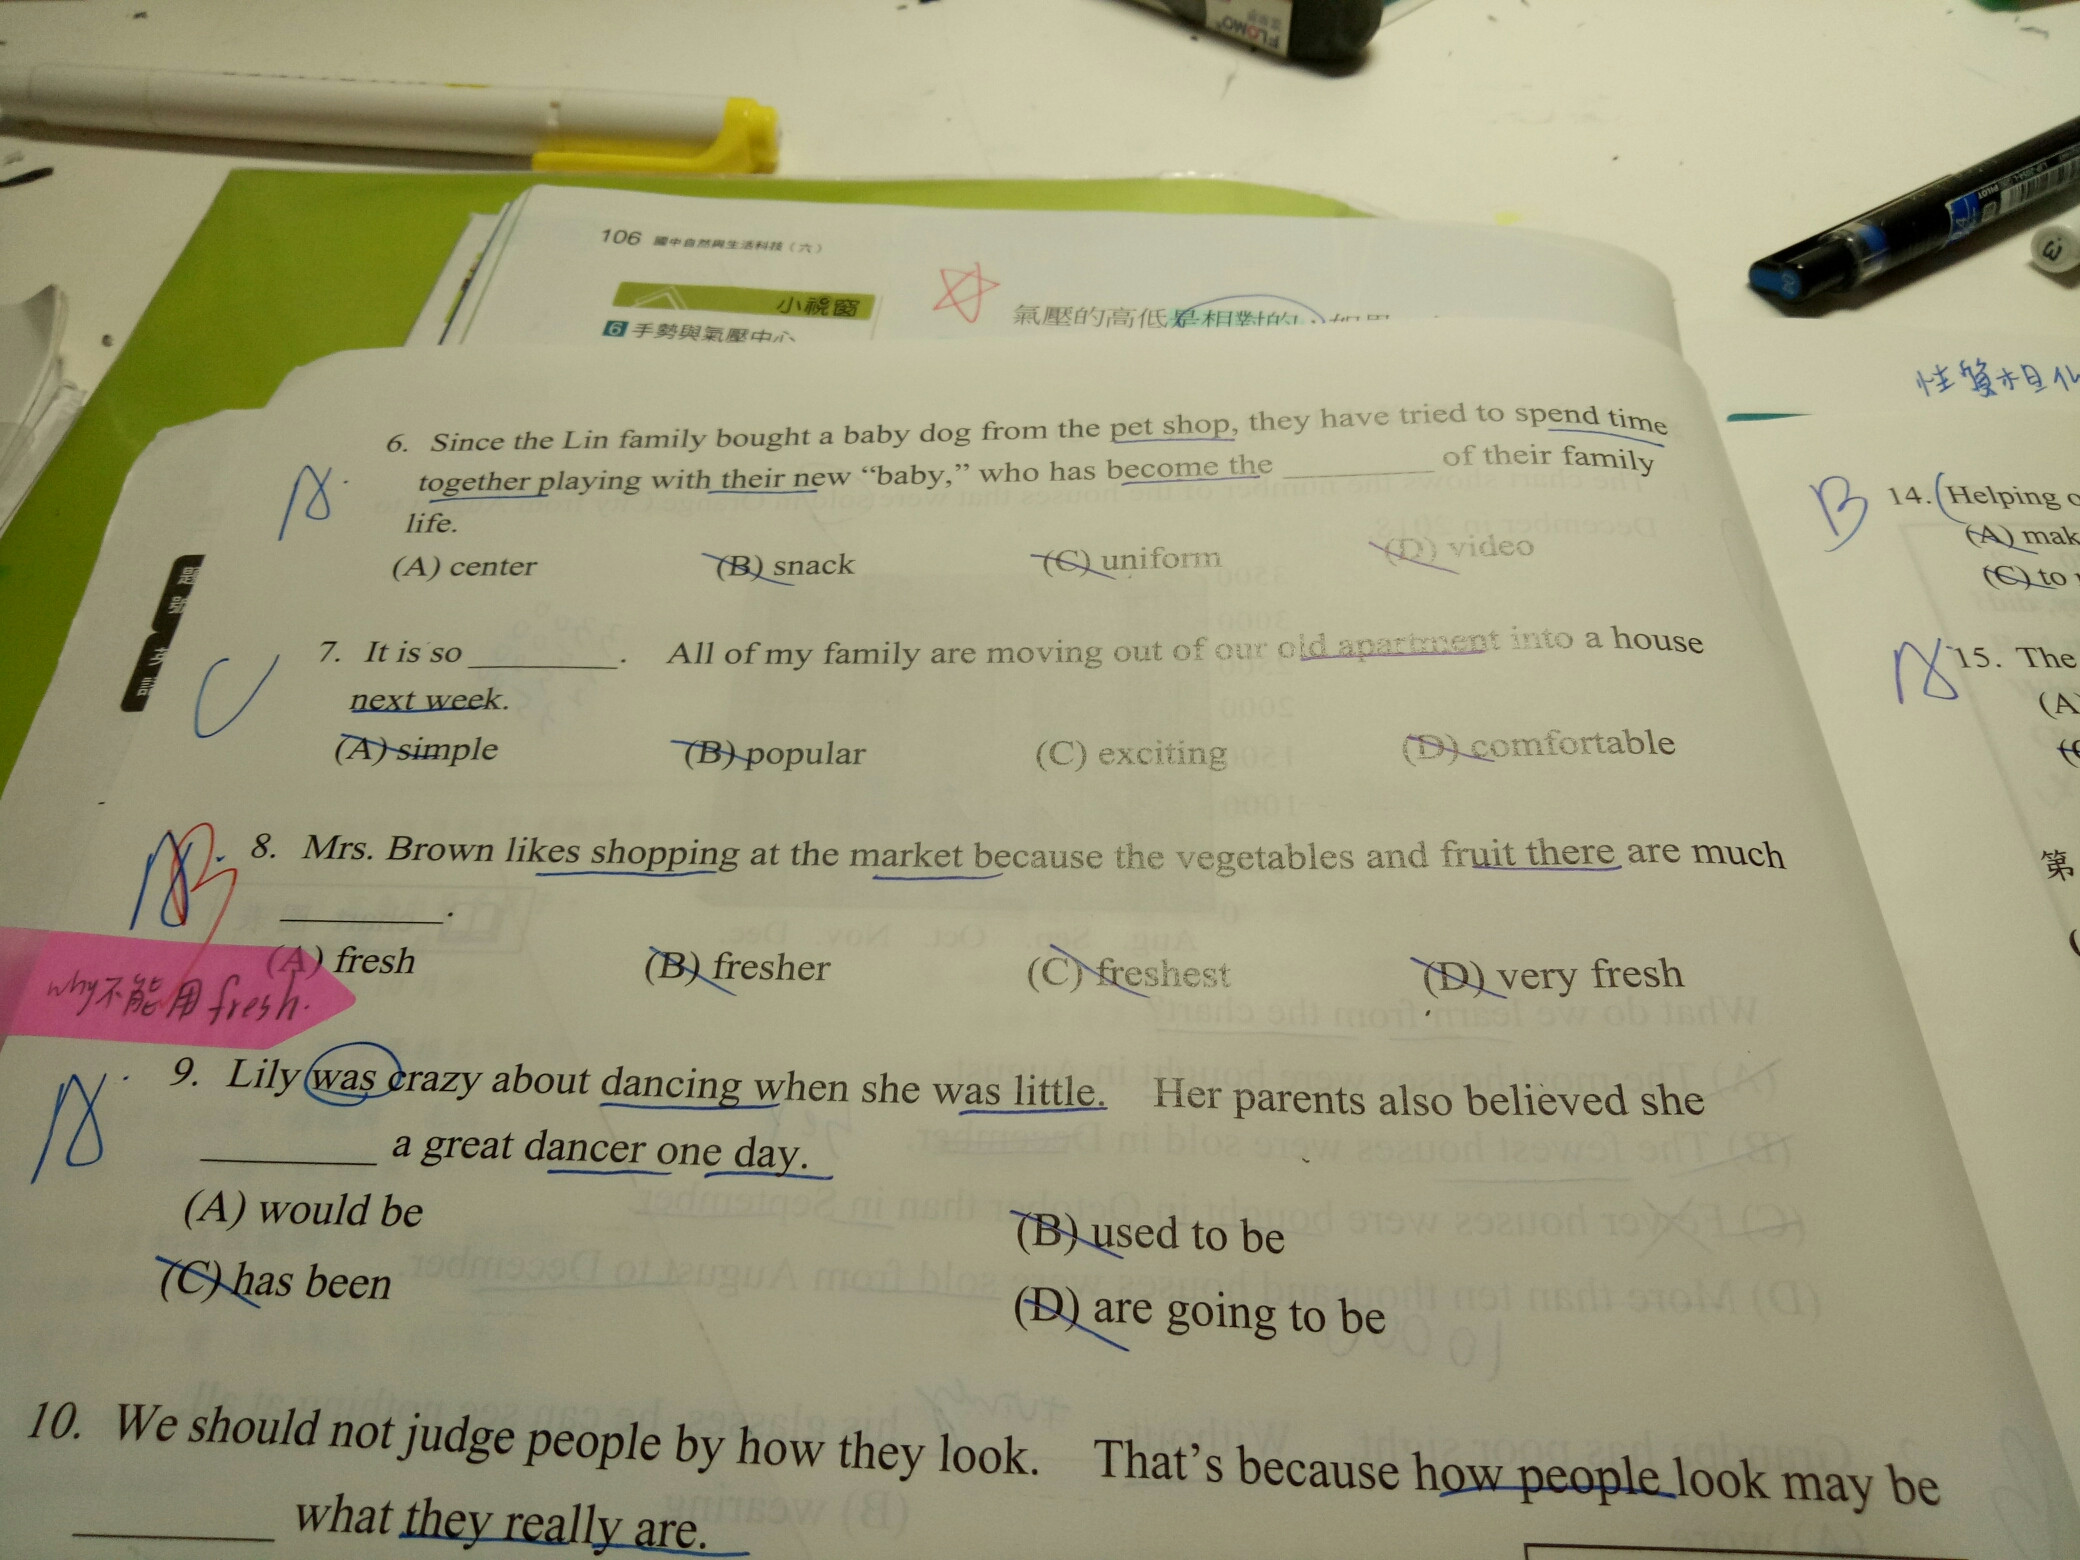 FLOMO
PILOT
106 國中自然與生活科技（六）
小視窗
6 手勢與氣壓中心
氣壓的高低是相對的，如果
性質相化
6. Since the Lin family bought a baby dog from the pet shop, they have tried to spend time
together playing with their new “baby,” who has become the ________ of their family
life.
(A) center (B) snack (C) uniform (D) video
A
題號
英語
7. It is so ________. All of my family are moving out of our old apartment into a house
next week.
(A) simple (B) popular (C) exciting (D) comfortable
C
8. Mrs. Brown likes shopping at the market because the vegetables and fruit there are much
________.
(A) fresh (B) fresher (C) freshest (D) very fresh
A B
why不能用fresh.
9. Lily was crazy about dancing when she was little. Her parents also believed she
________ a great dancer one day.
(A) would be (B) used to be
(C) has been (D) are going to be
A
10. We should not judge people by how they look. That’s because how people look may be
________ what they really are.
B
14. Helping
(A) mak
(C) to
A
15. The
(A)
第